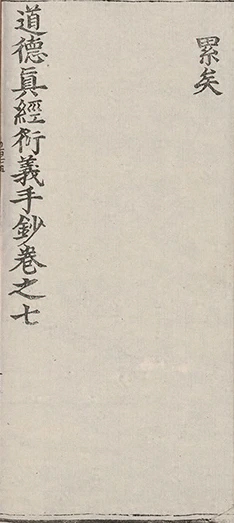 累矣
道德眞經衍義手鈔卷之七